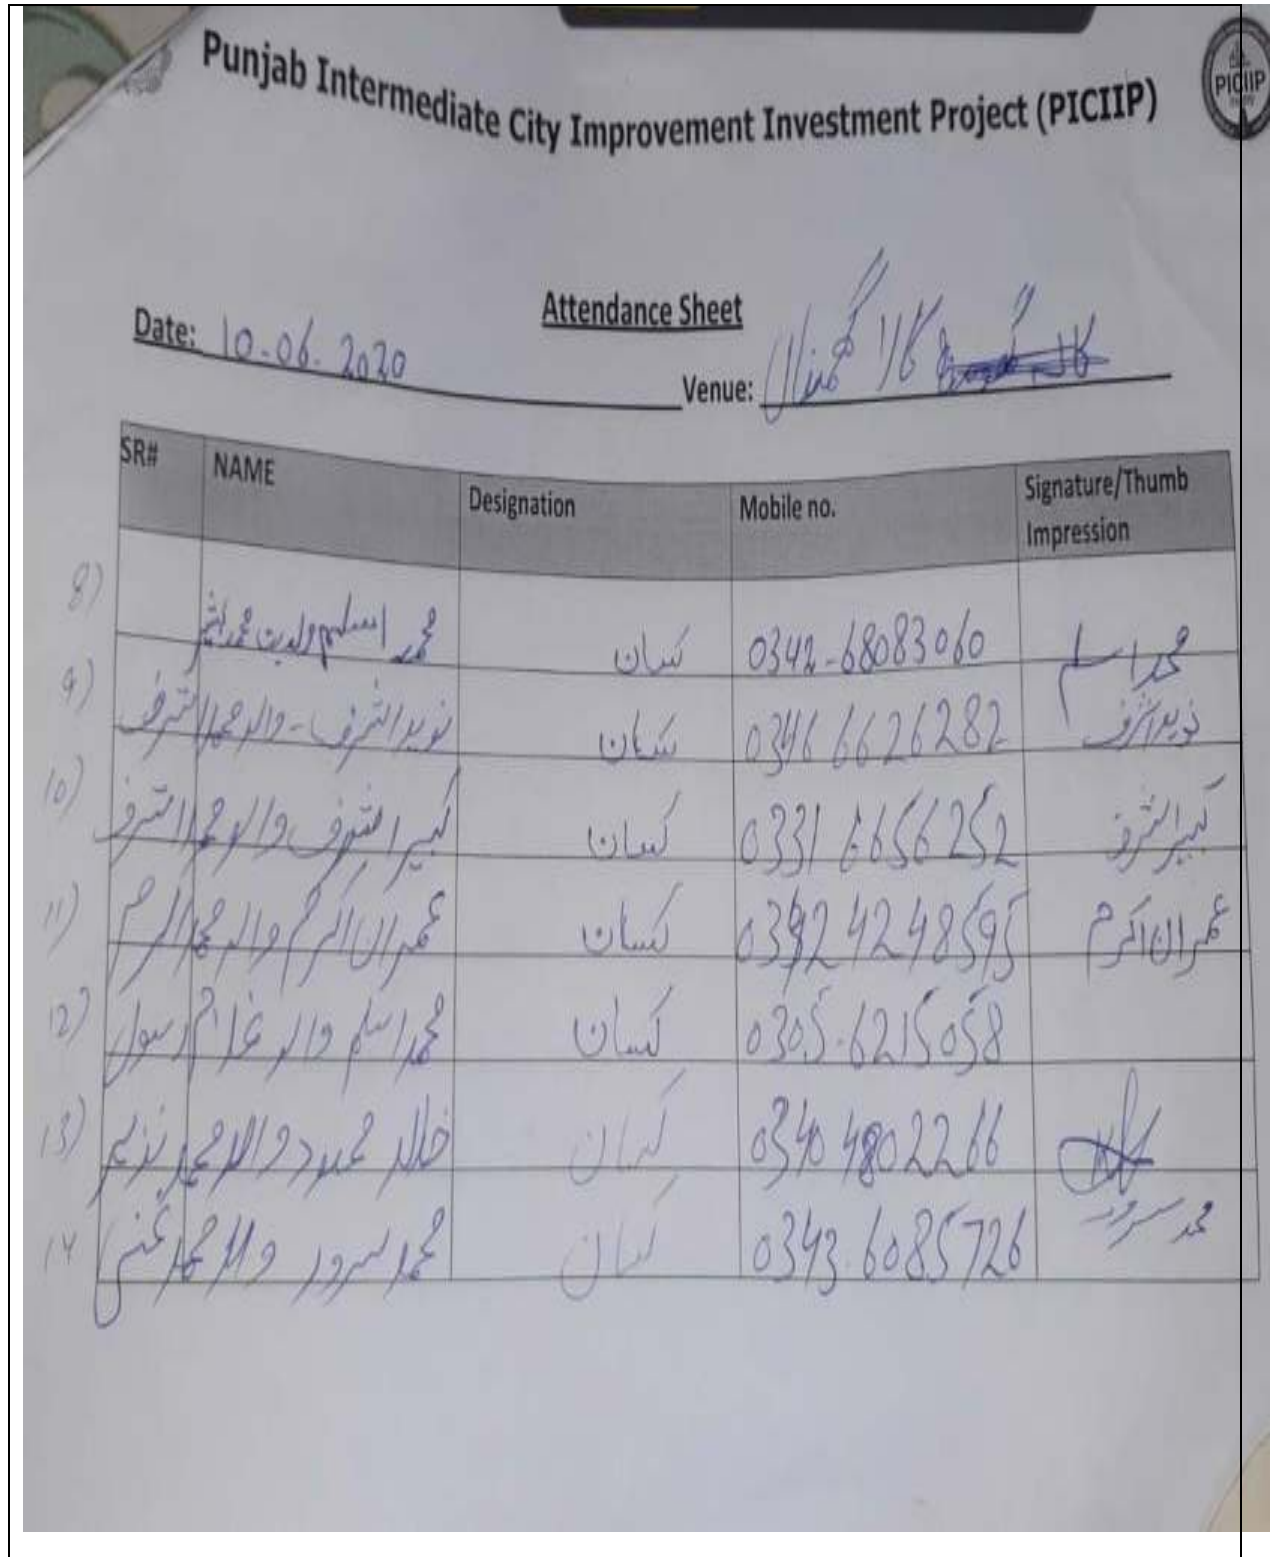 Punjab Intermediate City Improvement Investment Project (PICIIP)
PICIIP
Attendance Sheet
Date: 10-06-2020
Venue: کالا گھمناں
SR# NAME Designation Mobile no. Signature/Thumb Impression
8) محمد اسلم ولدیت محمد کسان 0342-68083060 محمد اسلم
9) نوید اشرف - والد محمد اشرف کسان 0346 6626282 نوید اشرف
10) کبیر اشرف والد محمد اشرف کسان 0331 6656252 کبیر اشرف
11) عمران اکرم والد محمد اکرم کسان 0342 4248595 عمران اکرم
12) محمد اسلم والد غلام رسول کسان 0305-6215058
13) خالد محمود والد محمد نذیر کسان 0340 4802266
14 محمد سرور والد محمد غنی کسان 0343-6085726 محمد سرور